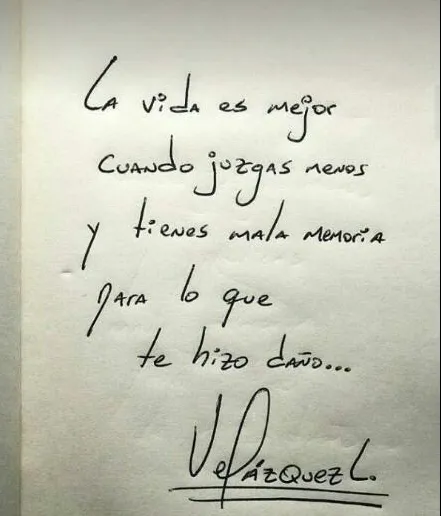 La vida es mejor
cuando juzgas menos
y tienes mala memoria
para lo que
te hizo daño...
Velázquez L.